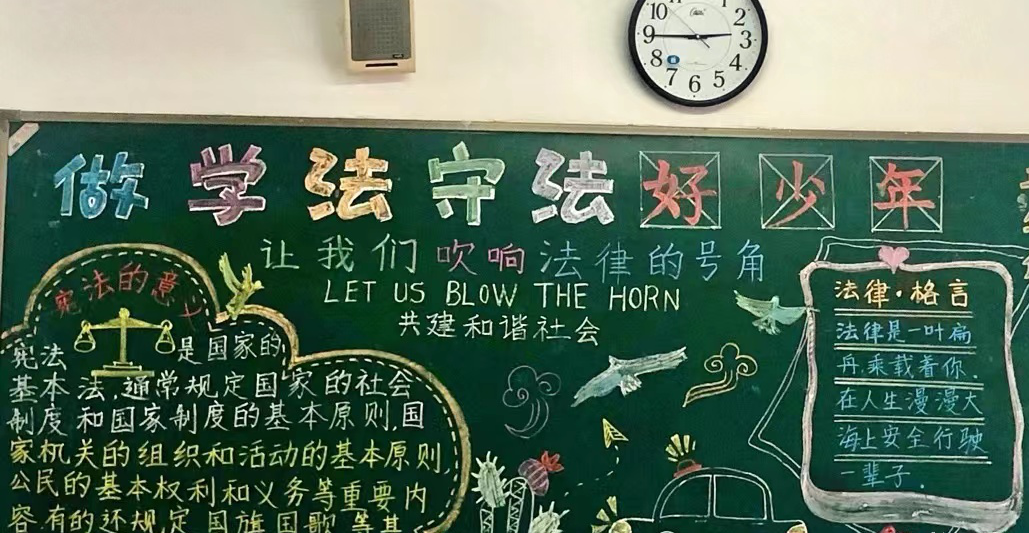 10
2
9
3
8
4
7
6
5
做学法守法好少年
让我们吹响法律的号角
LET US BLOW THE HORN
共建和谐社会
宪法的意义
宪法 是国家的
基本法,通常规定国家的社会
制度和国家制度的基本原则,国
家机关的组织和活动的基本原则,
公民的基本权利和义务等重要内
容,有的还规定国旗国歌等其
法律·格言
法律是一叶扁
丹,乘载着你.
在人生漫漫大
海上安全行驶
一辈子.